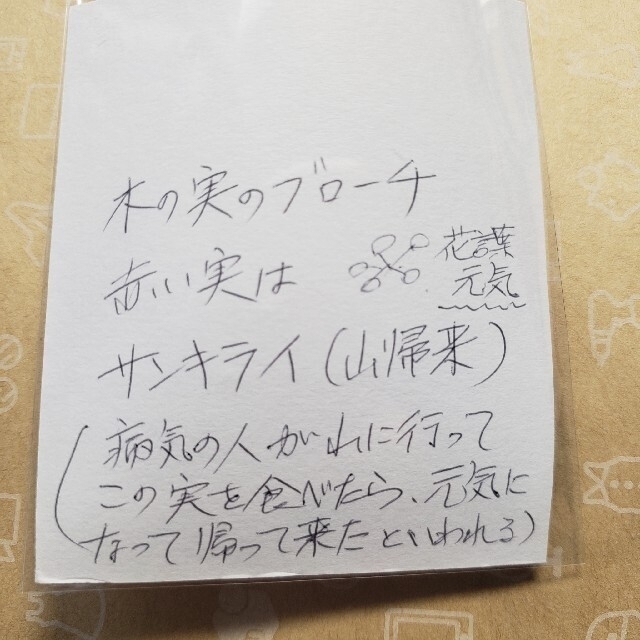 木の実のブローチ
赤い実は
花言葉
元気
サンキライ(山帰来)
(病気の人が山に行って
この実を食べたら、元気に
なって帰って来たといわれる)